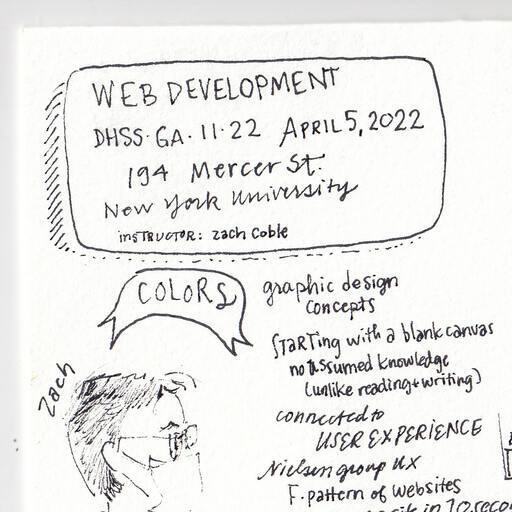 WEB DEVELOPMENT
DHSS-GA-11-22 APRIL 5, 2022
194 Mercer St.
New York University
INSTRUCTOR: Zach Coble
COLORS
graphic design
concepts
STARTING with a blank canvas
no assumed knowledge
(unlike reading+writing)
connected to
USER EXPERIENCE
Nielsen group UX
F-pattern of websites
in 10 seco
Zach